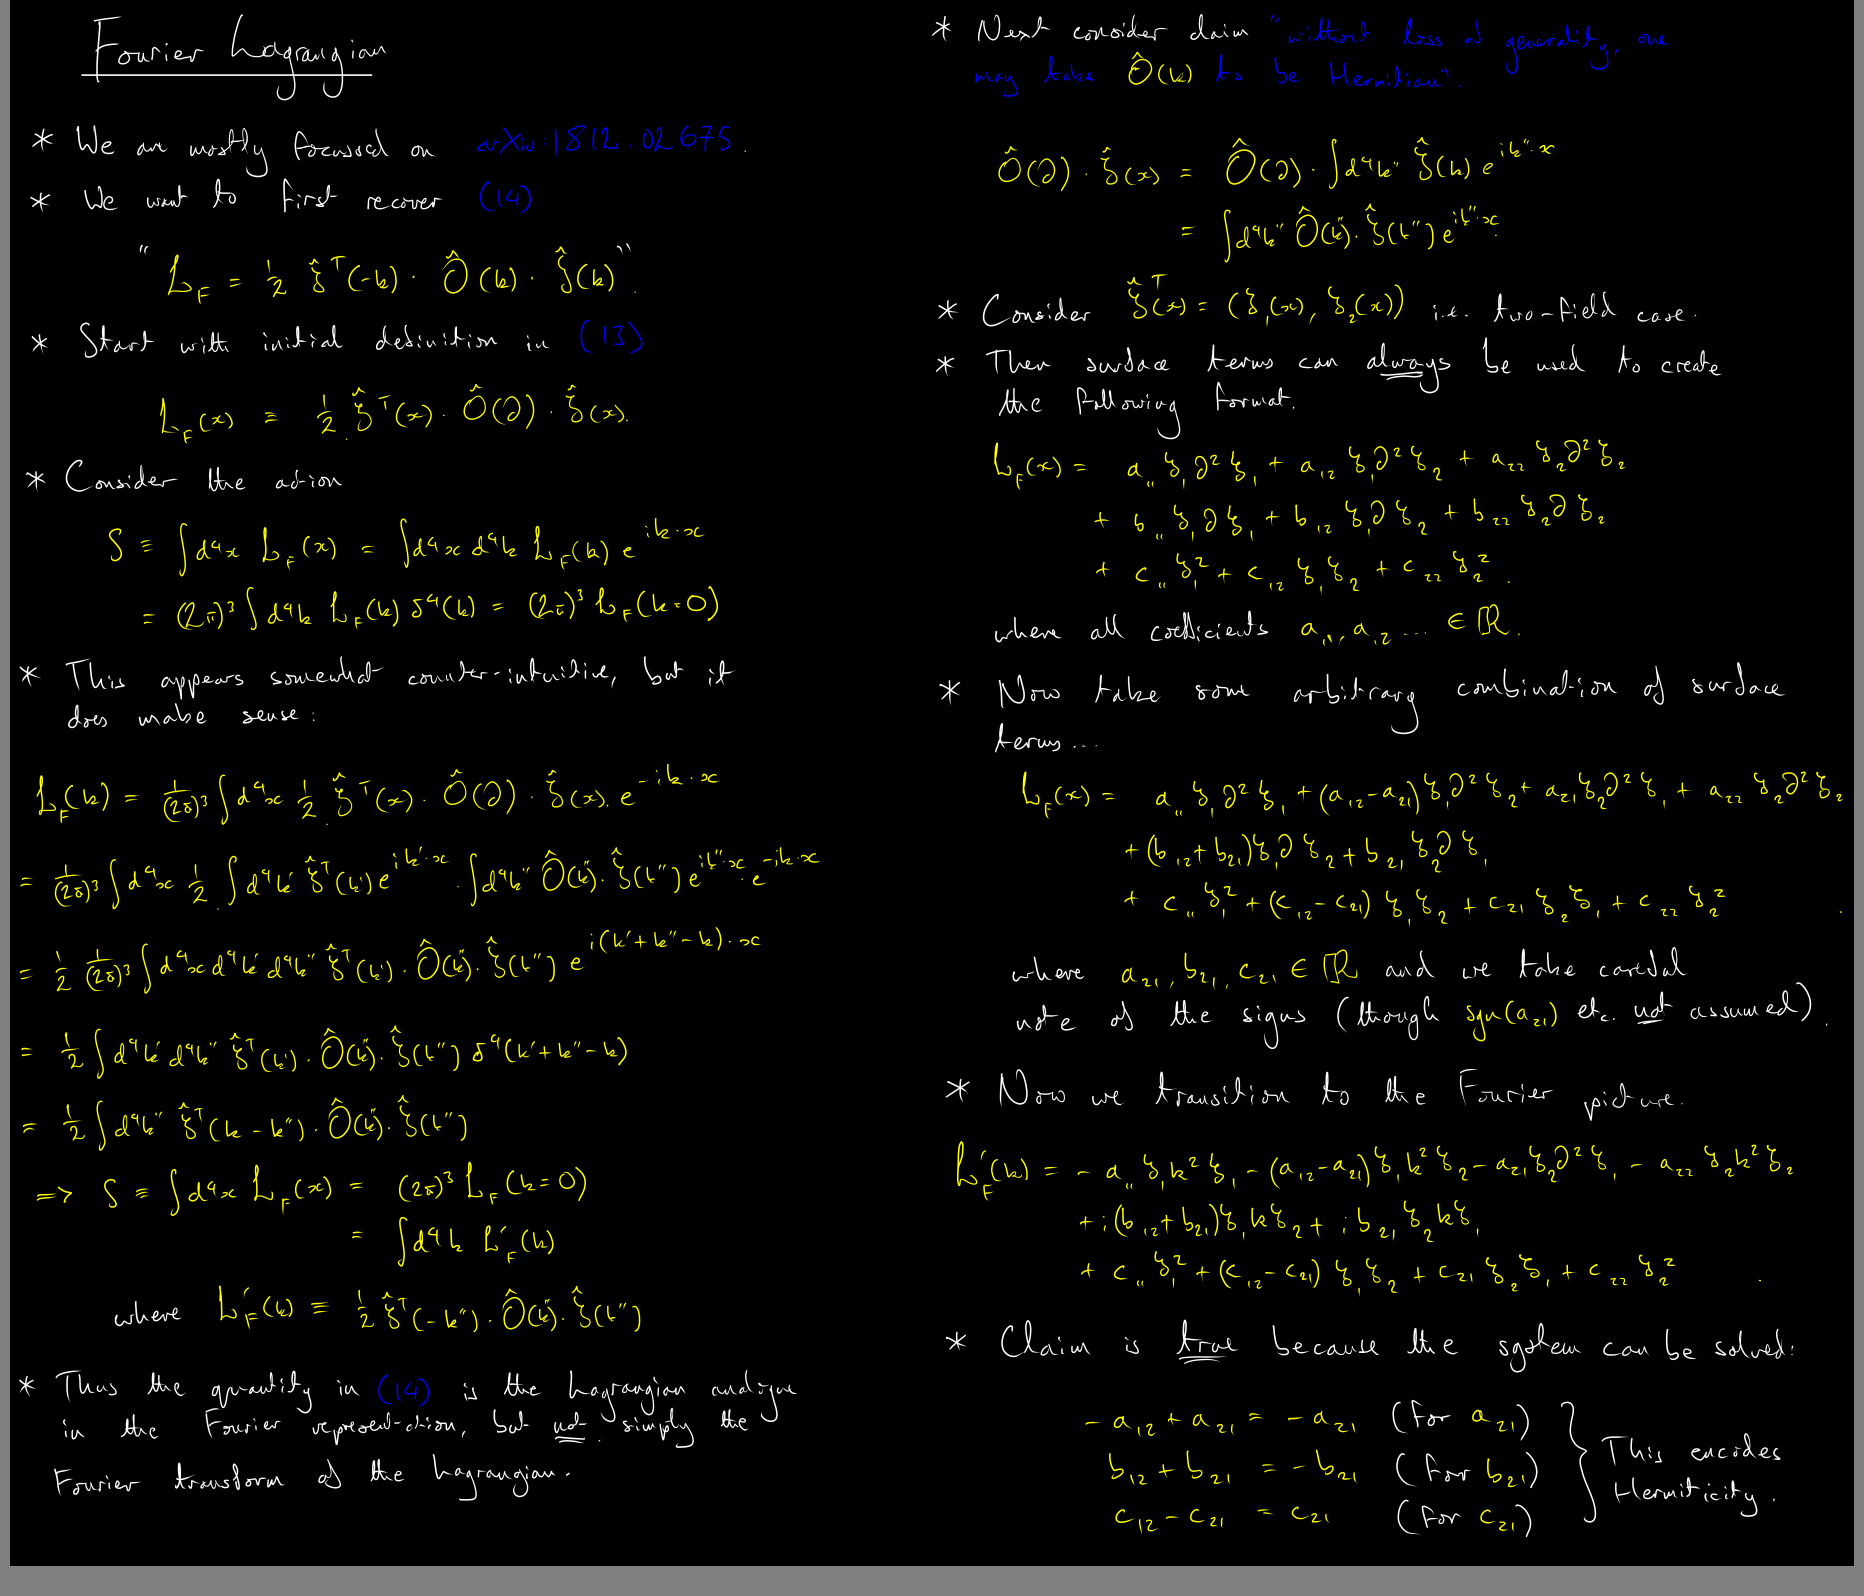 Fourier Lagrangian
* We are mostly focussed on arXiv:1812.02675.
* We want to first recover (14)
"L_F = ½ ζ̂ᵀ(-k) · Ô(k) · ζ̂(k)".
* Start with initial definition in (13)
L_F(x) ≡ ½ ζ̂ᵀ(x) · Ô(∂) · ζ̂(x).
* Consider the action
S ≡ ∫d⁴x L_F(x) = ∫d⁴x d⁴k L_F(k) e^{ik·x}
= (2π)³ ∫d⁴k L_F(k) δ⁴(k) = (2π)³ L_F(k=0)
* This appears somewhat counter-intuitive, but it
does make sense:
L_F(k) = 1/(2π)³ ∫d⁴x ½ ζ̂ᵀ(x) · Ô(∂) · ζ̂(x). e^{-ik·x}
= 1/(2π)³ ∫d⁴x ½ ∫d⁴k' ζ̂ᵀ(k') e^{ik'·x} · ∫d⁴k" Ô(k") · ζ̂(k") e^{ik"·x} · e^{-ik·x}
= ½ 1/(2π)³ ∫d⁴x d⁴k' d⁴k" ζ̂ᵀ(k') · Ô(k") · ζ̂(k") e^{i(k'+k"-k)·x}
= ½ ∫d⁴k' d⁴k" ζ̂ᵀ(k') · Ô(k") · ζ̂(k") δ⁴(k'+k"-k)
= ½ ∫d⁴k" ζ̂ᵀ(k-k") · Ô(k") · ζ̂(k")
=> S ≡ ∫d⁴x L_F(x) = (2π)³ L_F(k=0)
= ∫d⁴k L'_F(k)
where L'_F(k) ≡ ½ ζ̂ᵀ(-k") · Ô(k") · ζ̂(k")
* Thus the quantity in (14) is the Lagrangian analogue
in the Fourier representation, but not simply the
Fourier transform of the Lagrangian.
* Next consider claim "without loss of generality, one
may take Ô(k) to be Hermitian".
Ô(∂) · ζ̂(x) = Ô(∂) · ∫d⁴k" ζ̂(k) e^{ik"·x}
= ∫d⁴k" Ô(k") · ζ̂(k") e^{ik"·x}
* Consider ζ̂ᵀ(x) = (ζ₁(x), ζ₂(x)) i.e. two-field case.
* Then surface terms can always be used to create
the following format.
L_F(x) = a₁₁ ζ₁∂²ζ₁ + a₁₂ ζ₁∂²ζ₂ + a₂₂ ζ₂∂²ζ₂
+ b₁₁ ζ₁∂ζ₁ + b₁₂ ζ₁∂ζ₂ + b₂₂ ζ₂∂ζ₂
+ c₁₁ ζ₁² + c₁₂ ζ₁ζ₂ + c₂₂ ζ₂².
where all coefficients a₁₁, a₁₂ ... ∈ ℝ.
* Now take some arbitrary combination of surface
terms...
L_F(x) = a₁₁ ζ₁∂²ζ₁ + (a₁₂-a₂₁)ζ₁∂²ζ₂ + a₂₁ζ₂∂²ζ₁ + a₂₂ ζ₂∂²ζ₂
+ (b₁₂+b₂₁)ζ₁∂ζ₂ + b₂₁ ζ₂∂ζ₁
+ c₁₁ ζ₁² + (c₁₂-c₂₁) ζ₁ζ₂ + c₂₁ ζ₂ζ₁ + c₂₂ ζ₂² .
where a₂₁, b₂₁, c₂₁ ∈ ℝ and we take careful
note of the signs (though sgn(a₂₁) etc. not assumed).
* Now we transition to the Fourier picture.
L'_F(k) = - a₁₁ ζ₁k²ζ₁ - (a₁₂-a₂₁)ζ₁k²ζ₂ - a₂₁ζ₂∂²ζ₁ - a₂₂ ζ₂k²ζ₂
+ i(b₁₂+b₂₁)ζ₁kζ₂ + i b₂₁ ζ₂kζ₁
+ c₁₁ ζ₁² + (c₁₂-c₂₁) ζ₁ζ₂ + c₂₁ ζ₂ζ₁ + c₂₂ ζ₂² .
* Claim is true because the system can be solved:
-a₁₂ + a₂₁ = -a₂₁ (for a₂₁)
b₁₂ + b₂₁ = -b₂₁ (for b₂₁)
c₁₂ - c₂₁ = c₂₁ (for c₂₁)
This encodes
Hermiticity.